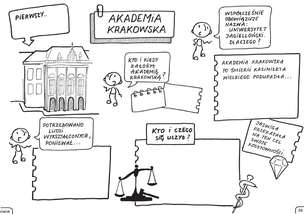 PIERWSZY...
AKADEMIA
KRAKOWSKA
WSPÓŁCZEŚNIE
OBOWIĄZUJE
NAZWA:
UNIWERSYTET
JAGIELLOŃSKI.
DLACZEGO?
KTO I KIEDY
ZAŁOŻYŁ
AKADEMIĘ
KRAKOWSKĄ?
AKADEMIA KRAKOWSKA
PO ŚMIERCI KAZIMIERZA
WIELKIEGO PODUPADŁA...
POTRZEBOWANO
LUDZI
WYKSZTAŁCONYCH,
PONIEWAŻ...
KTO I CZEGO
SIĘ UCZYŁ?
JADWIGA
PRZEKAZAŁA
NA TEN CEL
SWOJE
KOSZTOWNOŚCI